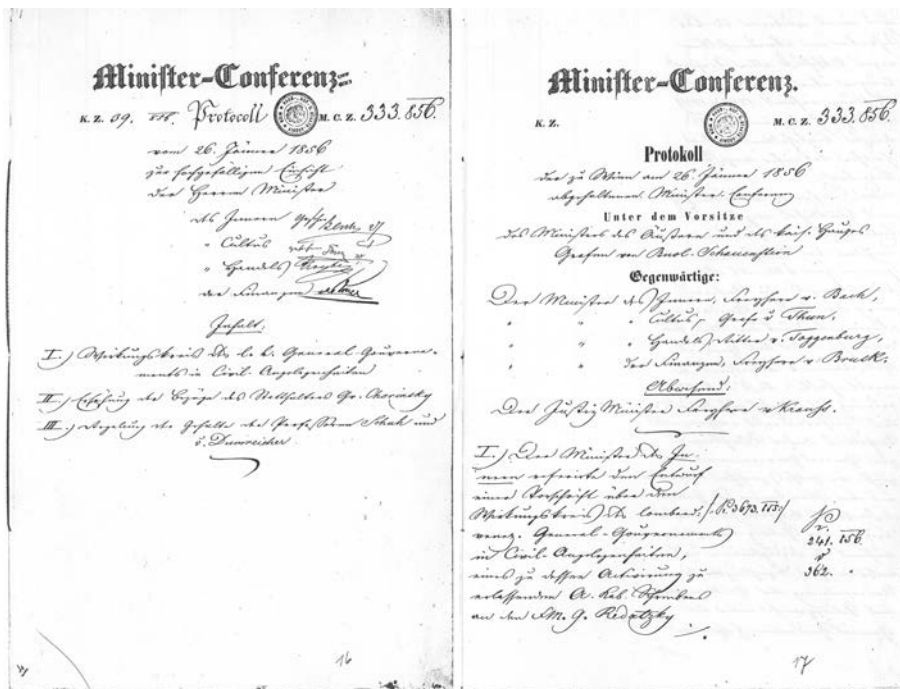 Minister-Conferenz
K. Z. 59. Protocoll M. C. Z. 333. 856.
vom 26. Jänner 1856
zur hochgefälligen Einsicht
der Herrn Minister
des Innern Bach
" Cultus Thun
" Handels
der Finanzen
Inhalt:
I.) Wirkungskreis des l. v. General-Gouverne-
ments in Civil-Angelegenheiten
II.) Erhöhung der Bezüge des Statthalters Gr. Chorinsky
III.) Regelung der Gehalte der Professoren Schuh und
v. Dumreicher.
16
Minister-Conferenz.
K. Z. M. C. Z. 333. 856.
Protokoll
der zu Wien am 26. Jänner 1856
abgehaltenen Minister-Conferenz
Unter dem Vorsitze
des Ministers des Äußern und des kais. Hauses
Grafen von Buol-Schauenstein
Gegenwärtige:
Der Minister des Innern, Freyherr v. Bach,
" " " Cultus, Graf v. Thun,
" " " Handels, Ritter v. Toggenburg,
" " der Finanzen, Freyherr v. Bruck.
Abwesend:
Der Justiz Minister Freyherr v. Krauß.
I.) Der Minister des In-
nern referirte den Entwurf
einer Vorschrift über den
Wirkungskreis des lombard.
venez. General-Gouvernements
in Civil-Angelegenheiten,
eines zu dessen Activirung zu
erlassenden A. Kab. Schreibens
an den F.M. G. Radetzky
241. 856.
362. "
17